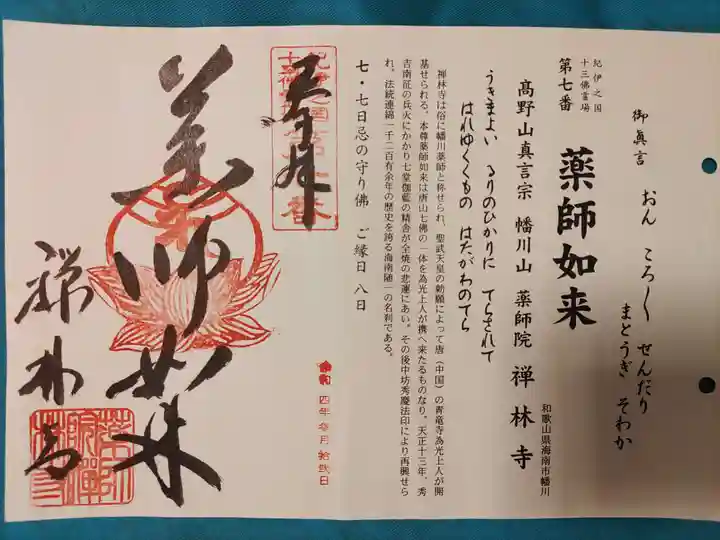 御眞言
おん ころ〳〵 せんだり
まとうぎ そわか
紀伊之国
十三佛霊場
第七番
薬師如来
和歌山県海南市幡川
高野山真言宗 幡川山 薬師院 禅林寺
うきまよい るりのひかりに てらされて
はれゆくくもの はたがわのてら
禅林寺は俗に幡川薬師と称せられ、聖武天皇の勅願によって唐（中国）の青竜寺為光上人が開
基せられる。本尊薬師如来は唐山七佛の一体を為光上人が携へ来たるものなり。天正十三年、秀
吉南征の兵火にかかり七堂伽藍の精舎が全焼の悲運にあい。その後中坊秀慶法印により再興せら
れ、法統連綿一千二百有余年の歴史を誇る海南随一の名刹である。
七・七日忌の守り佛 ご縁日 八日
奉拝
薬師如来
禅林寺
令和 四年 月拾弐日